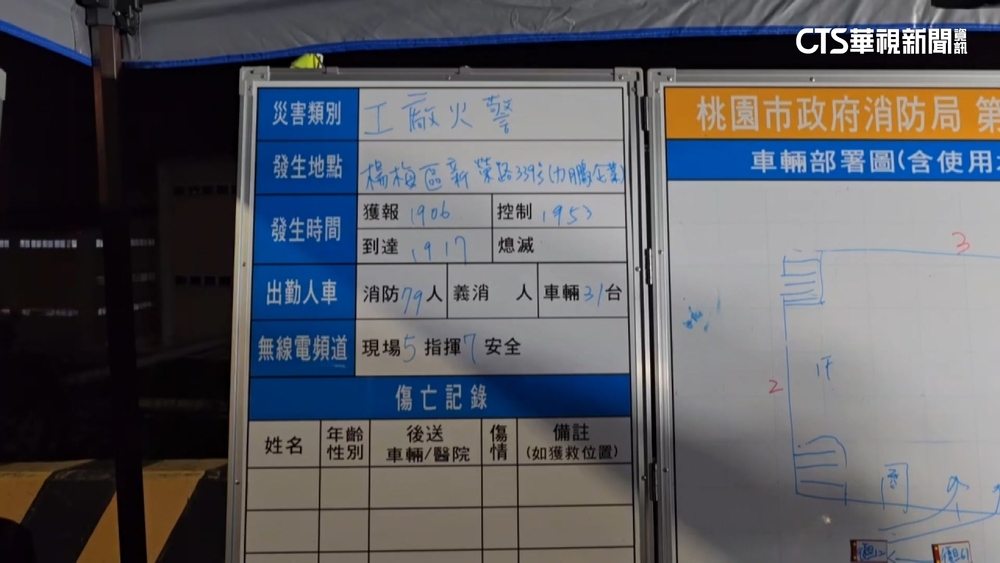 CTS華視新聞資訊
災害類別 工廠火警
發生地點 楊梅區新榮路339號(力鵬企業)
發生時間 獲報 1906 控制 1953
到達 1917 熄滅
出勤人車 消防79人 義消 人 車輛31台
無線電頻道 現場5 指揮7 安全
傷亡記錄
姓名 年齡性別 後送車輛/醫院 傷情 備註(如獲救位置)
桃園市政府消防局 第
車輛部署圖(含使用
3
1F
2